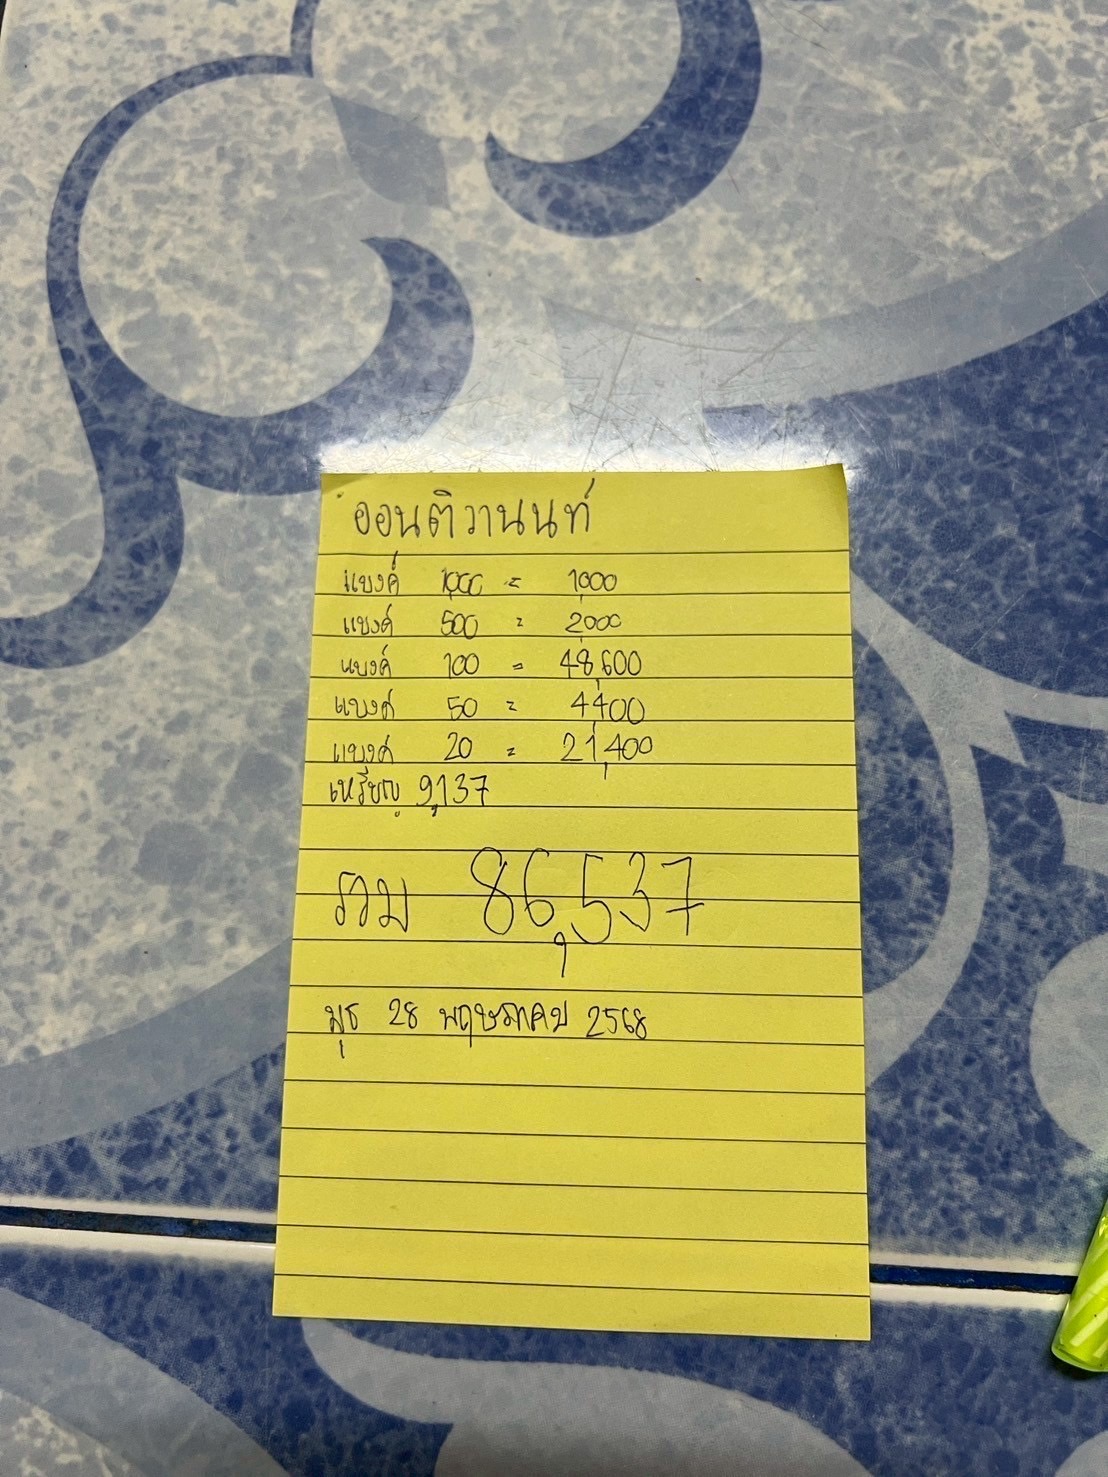 ออนติวานนท์
แบงค์ 1,000 = 1,000
แบงค์ 500 = 2,000
แบงค์ 100 = 48,600
แบงค์ 50 = 4,400
แบงค์ 20 = 21,400
เหรียญ 9,137
รวม 86,537
พุธ 28 พฤษภาคม 2568